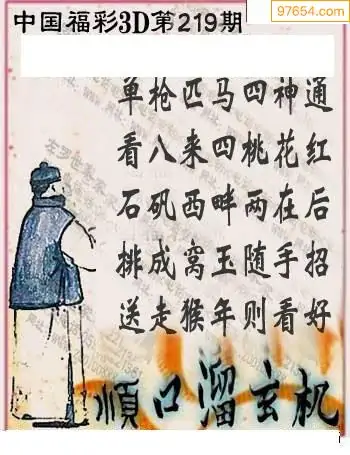 97654.com
中国福彩3D第219期
单枪匹马四神通
看八来四桃花红
石矶西畔两在后
排成窝玉随手招
送走猴年则看好
順口溜玄机